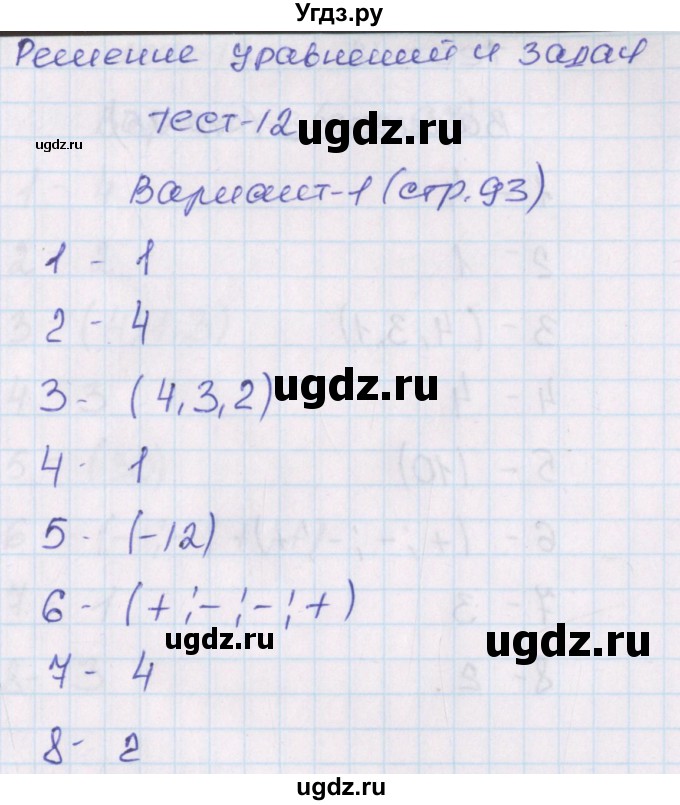 Угдз.ру
Решение уравнений и задач
Тест-12
ugdz.ru
ugdz.ru
ugdz.ru
Вариант-1 (стр.93)
1 - 1
2 - 4
ugdz.ru
3 - (4,3,2)
ugdz.ru
4 - 1
5 - (-12)
ugdz.ru
6 - (+;-;-;+)
ugdz.ru
ugdz.ru
7 - 4
8 - 2
ugdz.ru
ugdz.ru